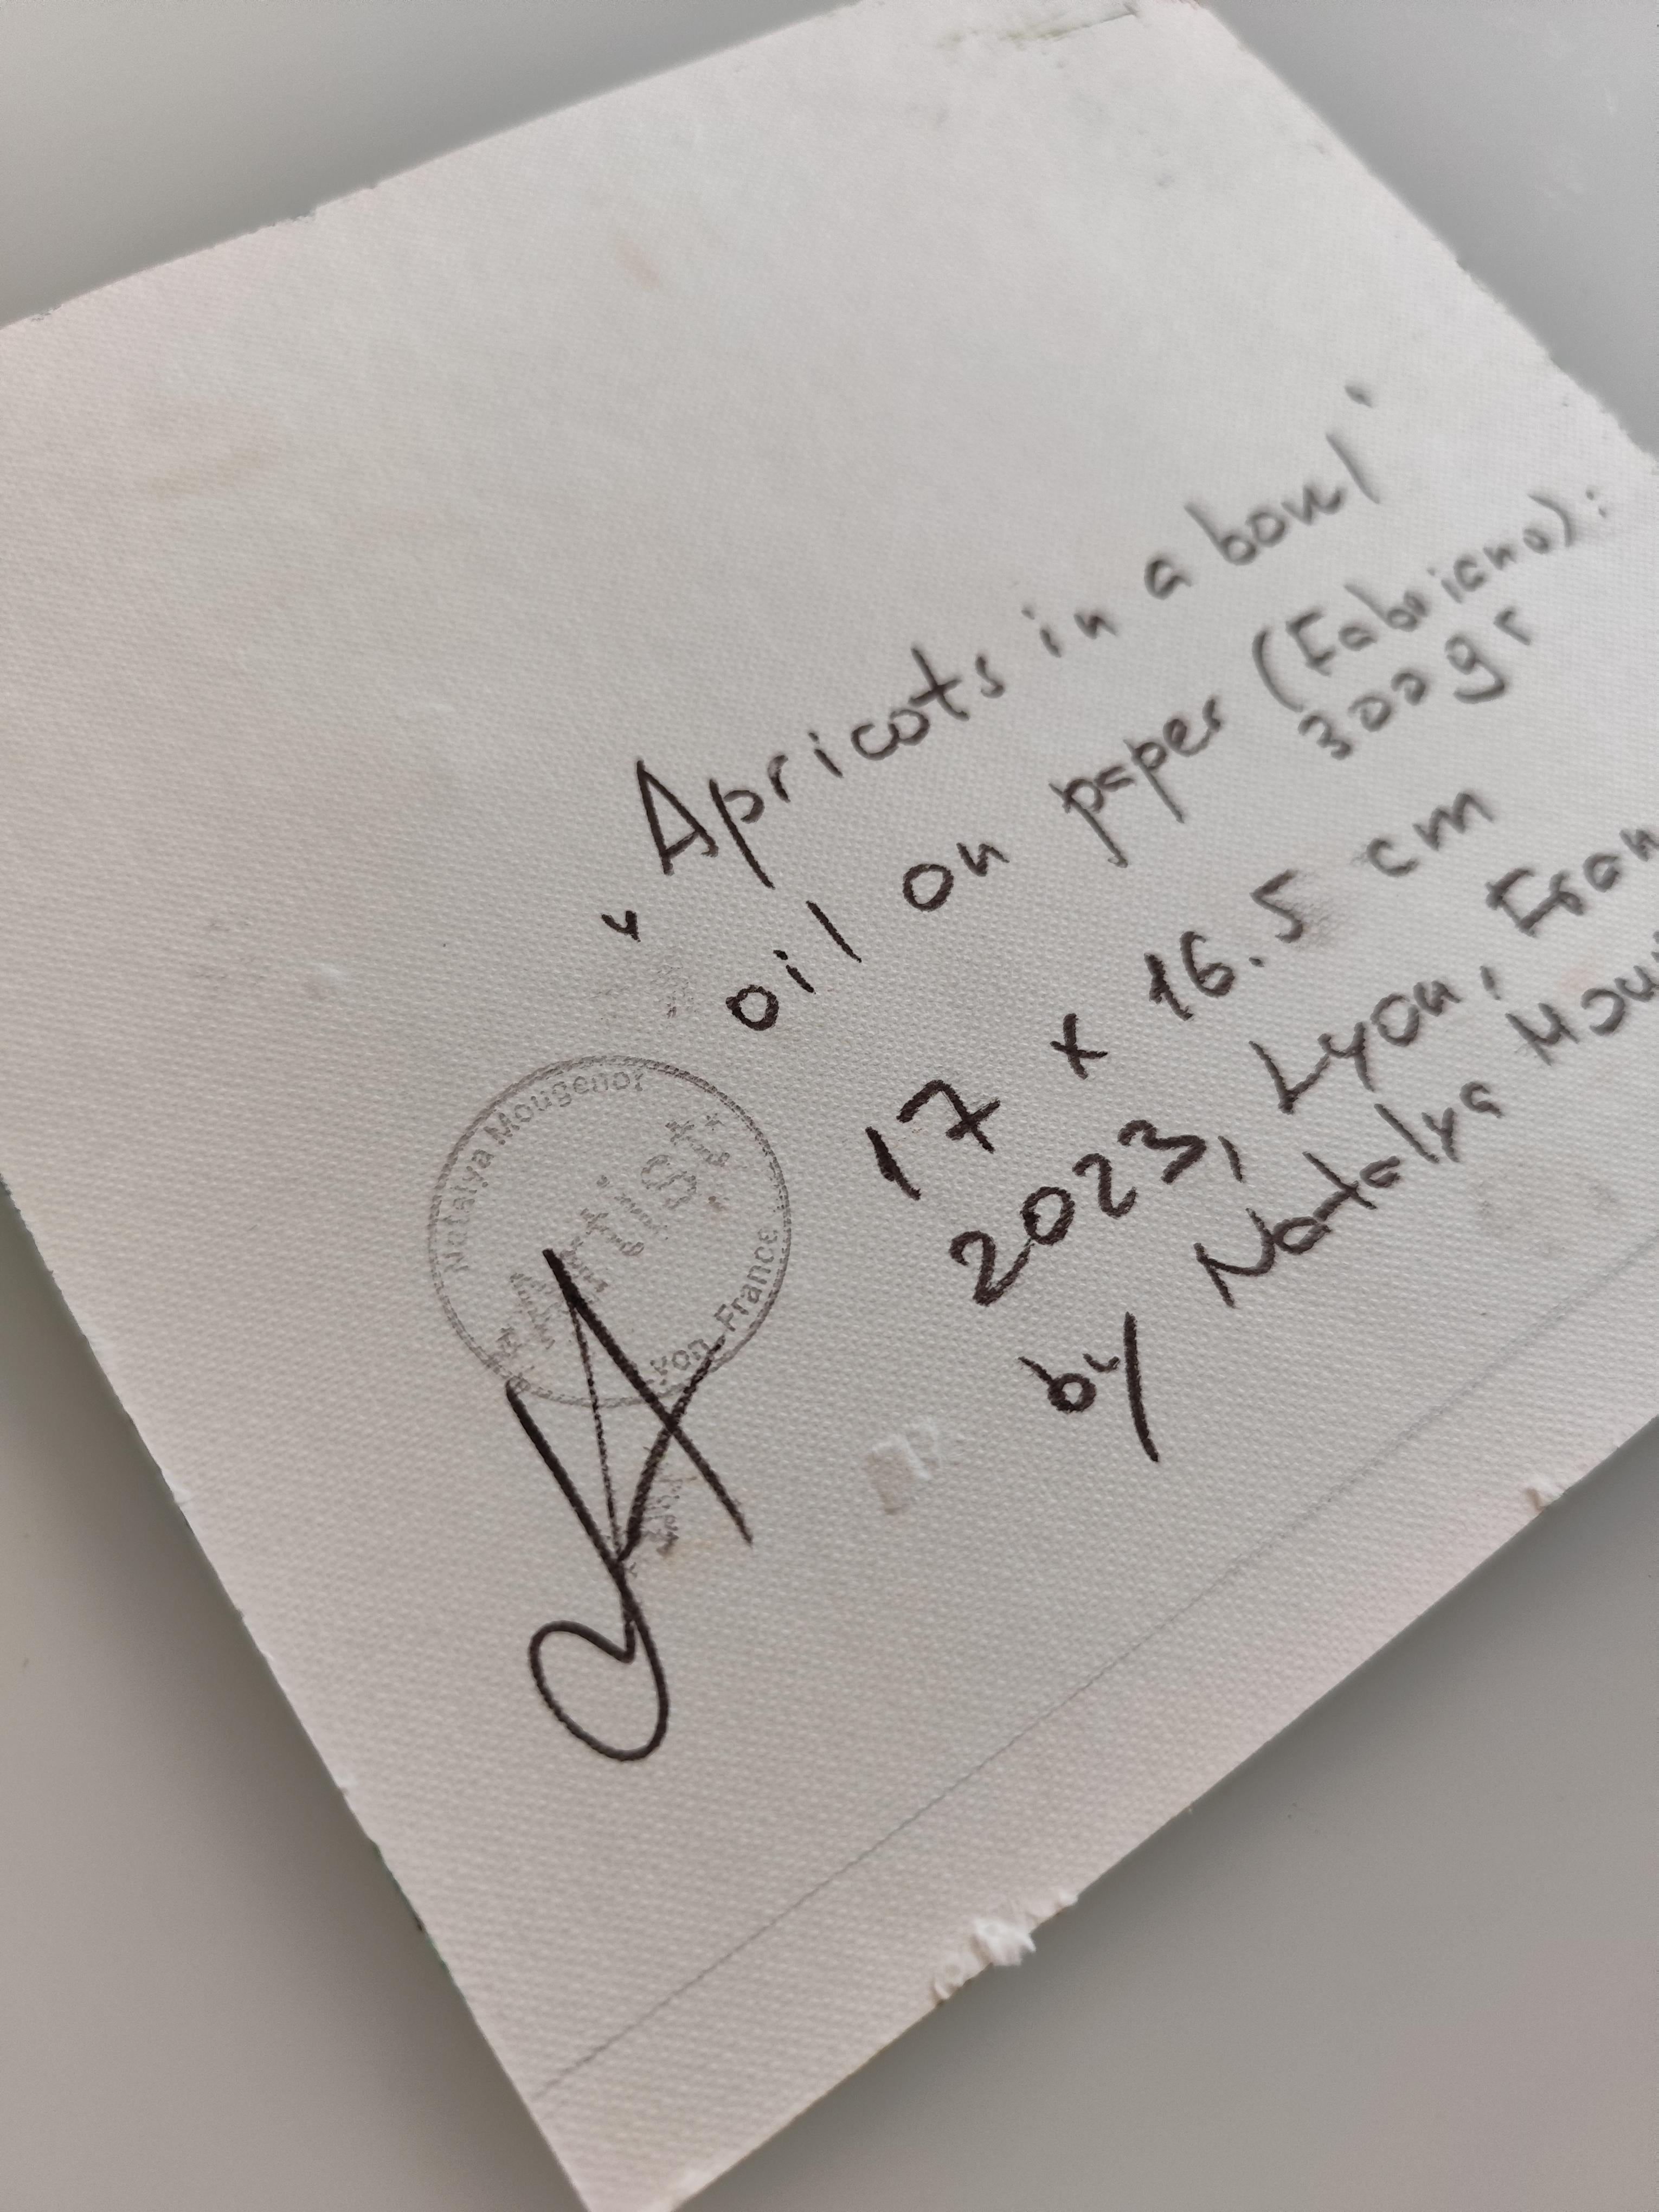 "Apricots in a bowl"
oil on paper (Fabriano):
300gr
17 x 16.5 cm
2023, Lyon, Fran
by Natalya Mou
Natalya Mougenot
"Artist"
Lyon, France